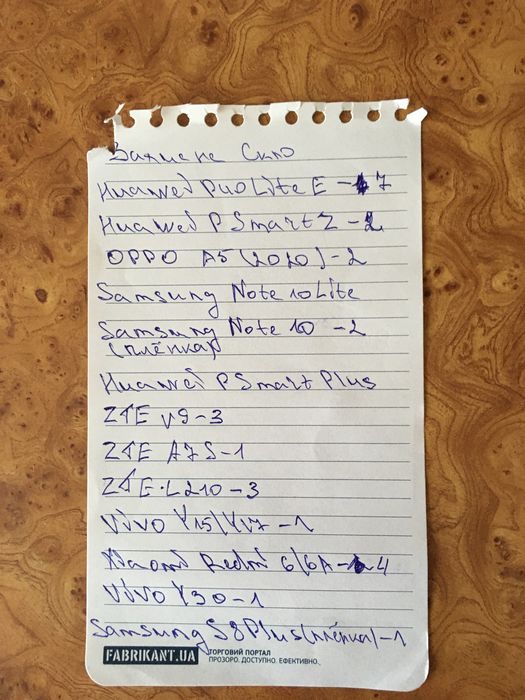 Захисне Скло
Huawei P40 Lite E - 7
Huawei P Smart Z - 2
OPPO A5 (2020) - 2
Samsung Note 10 Lite
Samsung Note 10 - 2
(плёнка)
Huawei P Smart Plus
ZTE V9 - 3
ZTE A7S - 1
ZTE L210 - 3
Vivo Y15/Y17 - 1
Xiaomi Redmi 6/6A - 4
Vivo Y30 - 1
Samsung S8 Plus (плёнка) - 1
FABRIKANT.UA
ТОРГОВИЙ ПОРТАЛ
ПРОЗОРО. ДОСТУПНО. ЕФЕКТИВНО.